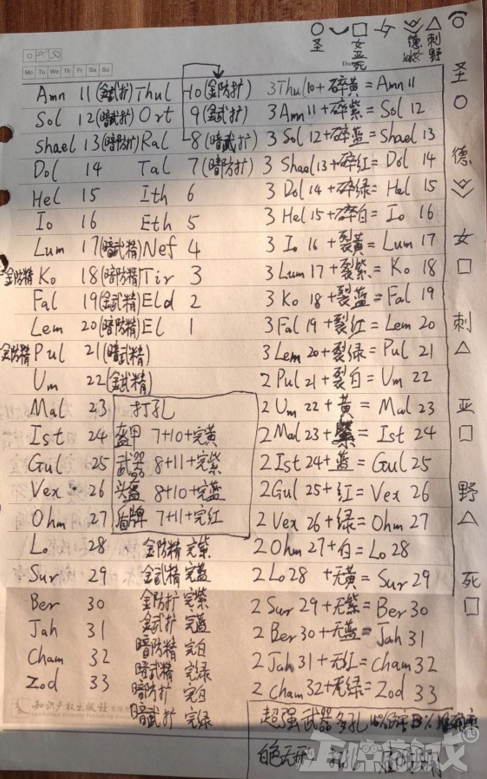 圣
女
亚
死
德
刺
野
Mo Tu We Th Fr Sa Su
Amn 11(金武扩) Thul 10(金防扩) 3Thul10+碎黄=Amn11
Sol 12(暗武扩) Ort 9(金武扩) 3Amn11+碎紫=Sol 12
Shael 13(暗防扩) Ral 8(暗武扩) 3 Sol 12+碎蓝=Shael 13
Dol 14 Tal 7(暗防扩) 3 Shael13+碎红=Dol 14
Hel 15 Ith 6 3 Dol 14+碎绿=Hel 15
Io 16 Eth 5 3 Hel 15+碎白=Io 16
Lum 17(暗武精) Nef 4 3 Io 16+裂黄=Lum 17
金防精 Ko 18(暗防精) Tir 3 3 Lum 17+裂紫=Ko 18
Fal 19(金武精) Eld 2 3 Ko 18+裂蓝=Fal 19
Lem 20(暗防精) El 1 3 Fal 19+裂红=Lem 20
金防精 Pul 21(暗武精) 3 Lem 20+裂绿=Pul 21
Um 22(金武精) 2 Pul 21+裂白=Um 22
Mal 23 打孔 2 Um 22+黄=Mal 23
Ist 24 盔甲 7+10+完黄 2 Mal 23+紫=Ist 24
Gul 25 武器 8+11+完紫 2 Ist 24+蓝=Gul 25
Vex 26 头盔 8+10+完蓝 2Gul 25+红=Vex 26
Ohm 27 盾牌 7+11+完红 2 Vex 26+绿=Ohm 27
Lo 28 金防精 完紫 2 Ohm 27+白=Lo 28
Sur 29 金武精 完蓝 2 Lo28+无黄=Sur 29
Ber 30 金防扩 完紫 2 Sur 29+无紫=Ber 30
Jah 31 金武扩 完蓝 2 Ber 30+无蓝=Jah 31
Cham 32 暗防精 完白 2 Jah 31+无红=Cham 32
Zod 33 暗武精 完绿 2 Cham 32+无绿=Zod 33
暗防扩 完白
暗武扩 完绿
知识产权出版社
超强武器多孔
白色无形
圣
德
女
刺
亚
野
死